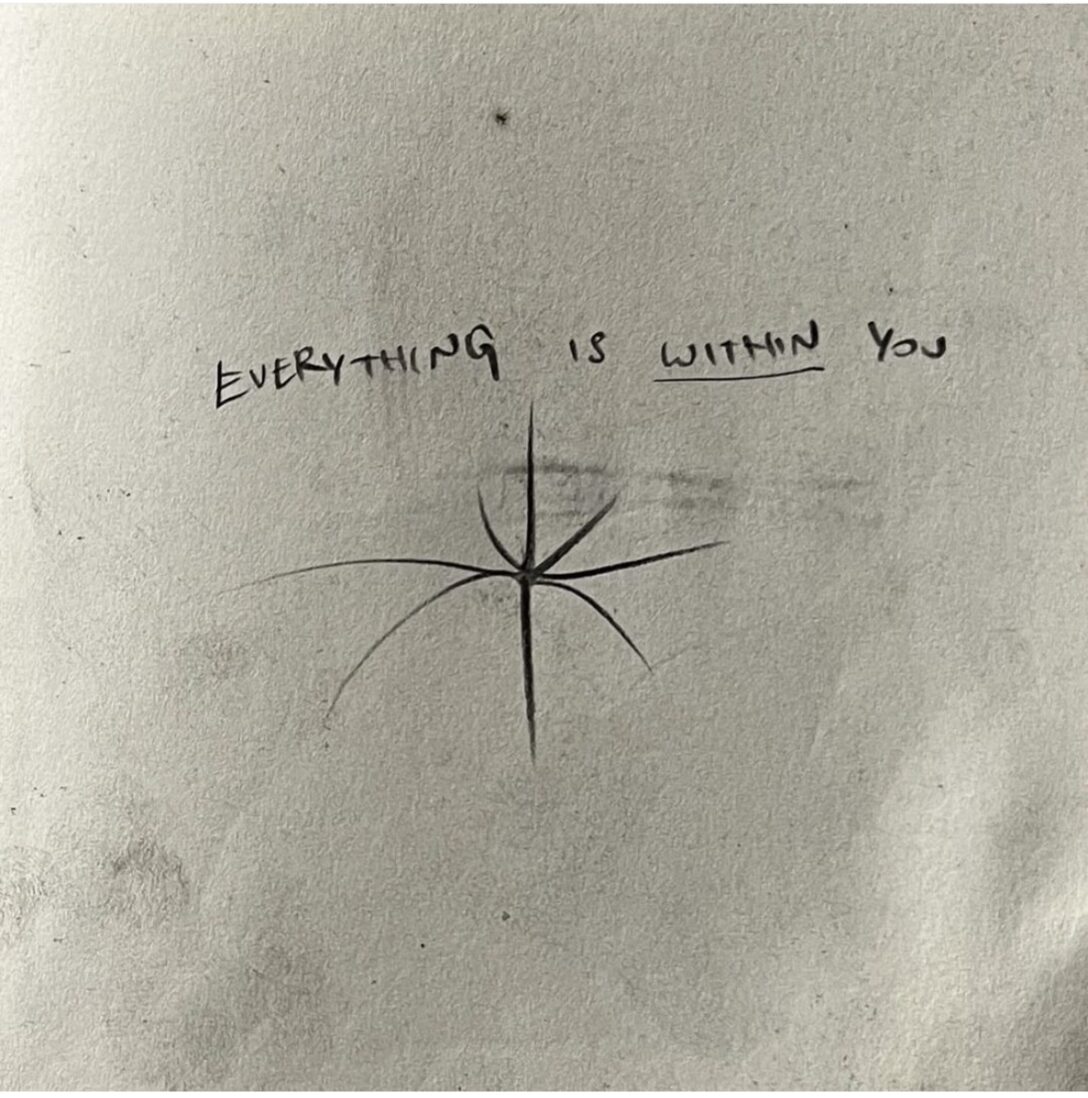 EVERYTHING IS WITHIN YOU